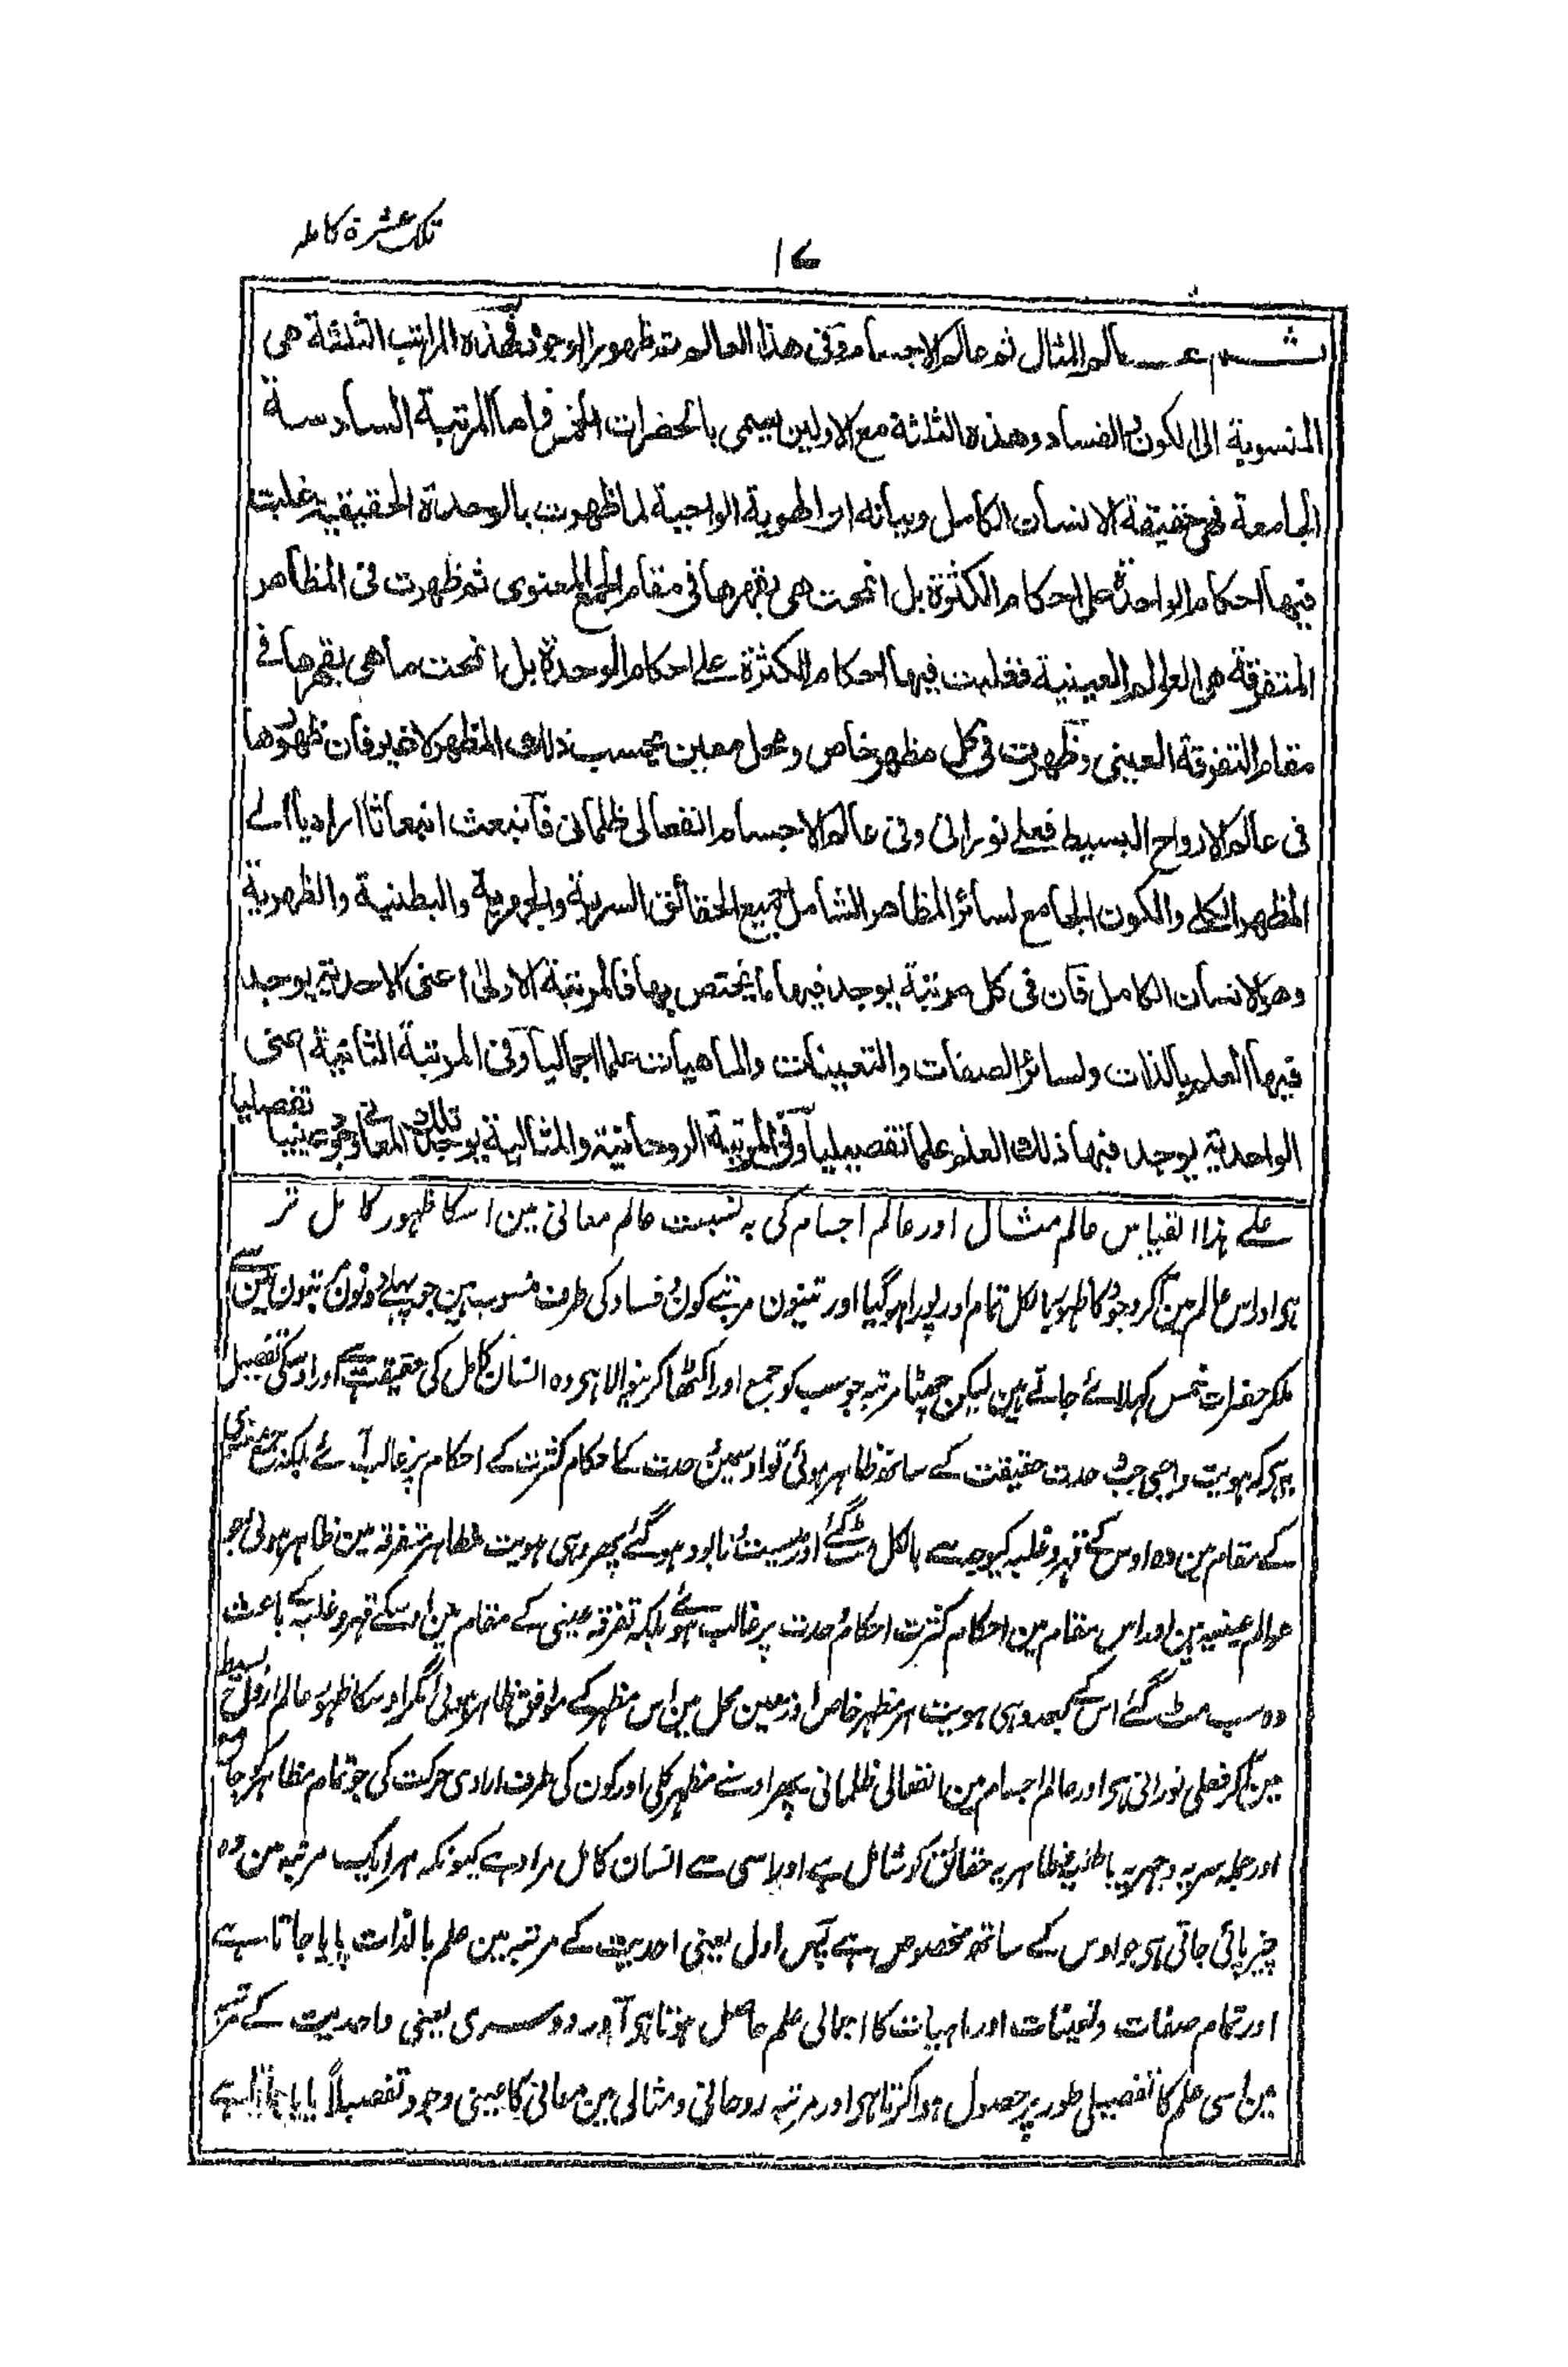 تلک عشرة کاملہ
۱۷
ثم عالم المثال ثم عالم الاجسام وفی هذا العالم تم ظهور الوجود فهذه المراتب الثلثة هی
المنسوبة الی الکون والفساد وهذه الثلثة مع الاولین یسمی بالحضرات الخمس فاما المرتبة السادسة
الجامعة فهی حقیقة الانسان الکامل وبیانه ان الهویة الواجبیة لما ظهرت بالوحدة الحقیقیة غلبت
فیها احکام الواحدة علی احکام الکثرة بل انمحت هی بقهرها فی مقام الجمع المعنوی ثم ظهرت فی المظاهر
المتفرقة هی العوالم العینیة فغلبت فیها احکام الکثرة علی احکام الوحدة بل انمحت ما هی بقهرها فی
مقام التفرقة العینی وظهرت فی کل مظهر خاص ومحل معین بحسب ذلک المظهر لا غیر فان ظهورها
فی عالم الارواح البسیط فعلی نورانی وفی عالم الاجسام انفعالی ظلمانی فانبعث انبعاثا ارادیا الی
المظهر الکلی والکون الجامع لسائر المظاهر الشامل جمیع الحقائق السریة والجهریة والبطنیة والظهریة
وهو الانسان الکامل فان فی کل مرتبة یوجد فیها ما یختص بها فالمرتبة الاولی اعنی الاحدیة یوجد
فیها العلم بالذات ولسائر الصفات والتعینات والماهیات علما اجمالیا وفی المرتبة الثانیة اعنی
الواحدیة یوجد فیها ذلک العلم علما تفصیلیا وفی المرتبة الروحانیة والمثالیة یوجد تلک المعانی وجود عینیا تفصیلیا
علے ہذا القیاس عالم مثال اور عالم اجسام کی بہ نسبت عالم معانی مین اسکا ظہور کامل تر
ہی اور اس عالم مین آکر وجود کا ظہور بالکل تمام اور پورا ہوگیا اور تینون مرتبے کون و فساد کی طرف منسوب ہین جو پہلے دونون مرتبون مین سے
ملکر حضرات خمس کہلائے جاتے ہین لیکن چھٹا مرتبہ جو سب کو جمع اور اکٹھا کرنیوالا ہی وہ انسان کامل کی حقیقت ہے اور اوسکی تفصیل
یہ ہی کہ ہویت واجبی جب وحدت حقیقت کے ساتھ ظاہر ہوئی تو اوسمین وحدت کے احکام کثرت کے احکام پر غالب آئے بلکہ جمع معنوی
کے مقام مین وہ اوس کے قہر و غلبہ کیوجہ سے بالکل مٹ گئے اور نیست و نابود ہوگئے پھر وہی ہویت مظاہر متفرقہ مین ظاہر ہوئی جو
عوالم عینیہ ہین اور اس مقام مین احکام کثرت احکام وحدت پر غالب ہوئے بلکہ تفرقہ عینی کے مقام مین اوسکے قہر و غلبہ کے باعث
وہ سب مٹ گئے اس کے بعد وہی ہویت ہر مظہر خاص اور معین محل مین اس مظہر کے موافق ظاہر ہوئی مگر اوسکا ظہور عالم ارواح بسیط
مین آکر فعلی نورانی ہی اور عالم اجسام مین انفعالی ظلمانی پھر اوسنے مظہر کلی اور کون کی طرف ارادی حرکت کی جو تمام مظاہر کو جامع
اور جملہ سریہ و جہریہ باطنیہ و ظاہریہ حقائق کو شامل ہے اور اسی سے انسان کامل مراد ہے کیونکہ ہر ایک مرتبہ مین وہ
چیز پائی جاتی ہی جو اوس کے ساتھ مخصوص ہے پس اول یعنی احدیت کے مرتبہ مین علم بالذات پایا جاتا ہے
اور تمام صفات و تعینات اور ماہیات کا اجمالی علم حاصل ہوتا ہی اور دوسری یعنی واحدیت کے مرتبہ
مین اسی علم کا تفصیلی طور پر حصول ہوا کرتا ہی اور مرتبہ روحانی و مثالی مین معانی کا عینی وجود تفصیلاً پایا جاتا ہے